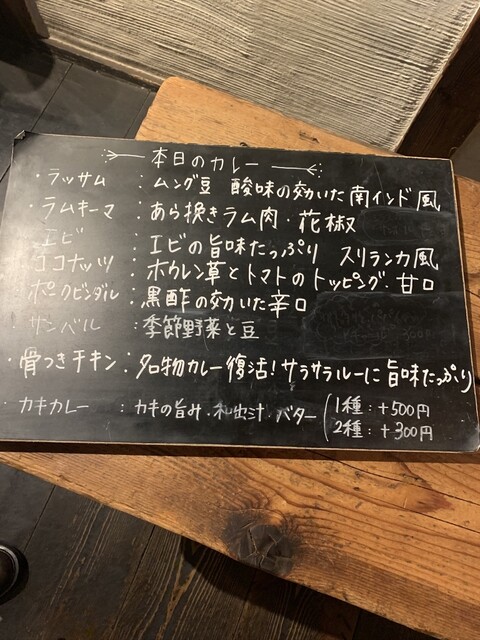 本日のカレー
・ラッサム : ムング豆 酸味の効いた南インド風
・ラムキーマ : あら挽きラム肉・花椒
・エビ : エビの旨味たっぷり スリランカ風
ココナッツ : ホウレン草とトマトのトッピング・甘口
ポークビンダル : 黒酢の効いた辛口
・サンバル : 季節野菜と豆
・骨つきチキン : 名物カレー復活!サラサラルーに旨味たっぷり
・カキカレー : カキの旨み・和出汁・バター (1種:+500円
2種:+300円